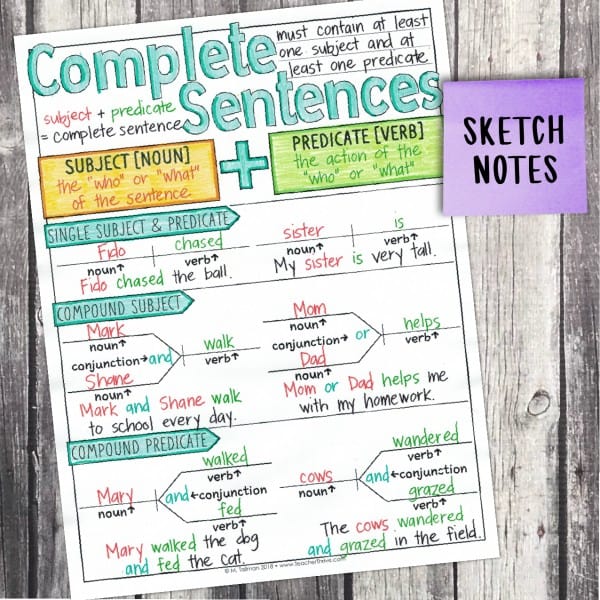 Complete
Sentences
must contain at least
one subject and at
least one predicate
subject + predicate
= complete sentence
SUBJECT [NOUN]
the "who" or "what"
of the sentence
+
PREDICATE [VERB]
the action of the
"who" or "what"
SKETCH
NOTES
SINGLE SUBJECT & PREDICATE
Fido chased
noun↑ verb↑
Fido chased the ball.
sister is
noun↑ verb↑
My sister is very tall.
COMPOUND SUBJECT
Mark
noun↑
conjunction→and
walk
verb↑
Shane
noun↑
Mark and Shane walk
to school every day.
Mom
noun↑
conjunction→ or
helps
verb↑
Dad
noun↑
Mom or Dad helps me
with my homework.
COMPOUND PREDICATE
walked
verb↑
Mary
noun↑
and←conjunction
fed
verb↑
Mary walked the dog
and fed the cat.
wandered
verb↑
cows
noun↑
and←conjunction
grazed
verb↑
The cows wandered
and grazed in the field.
© M. Tallman 2018 • www.teacherthrive.com